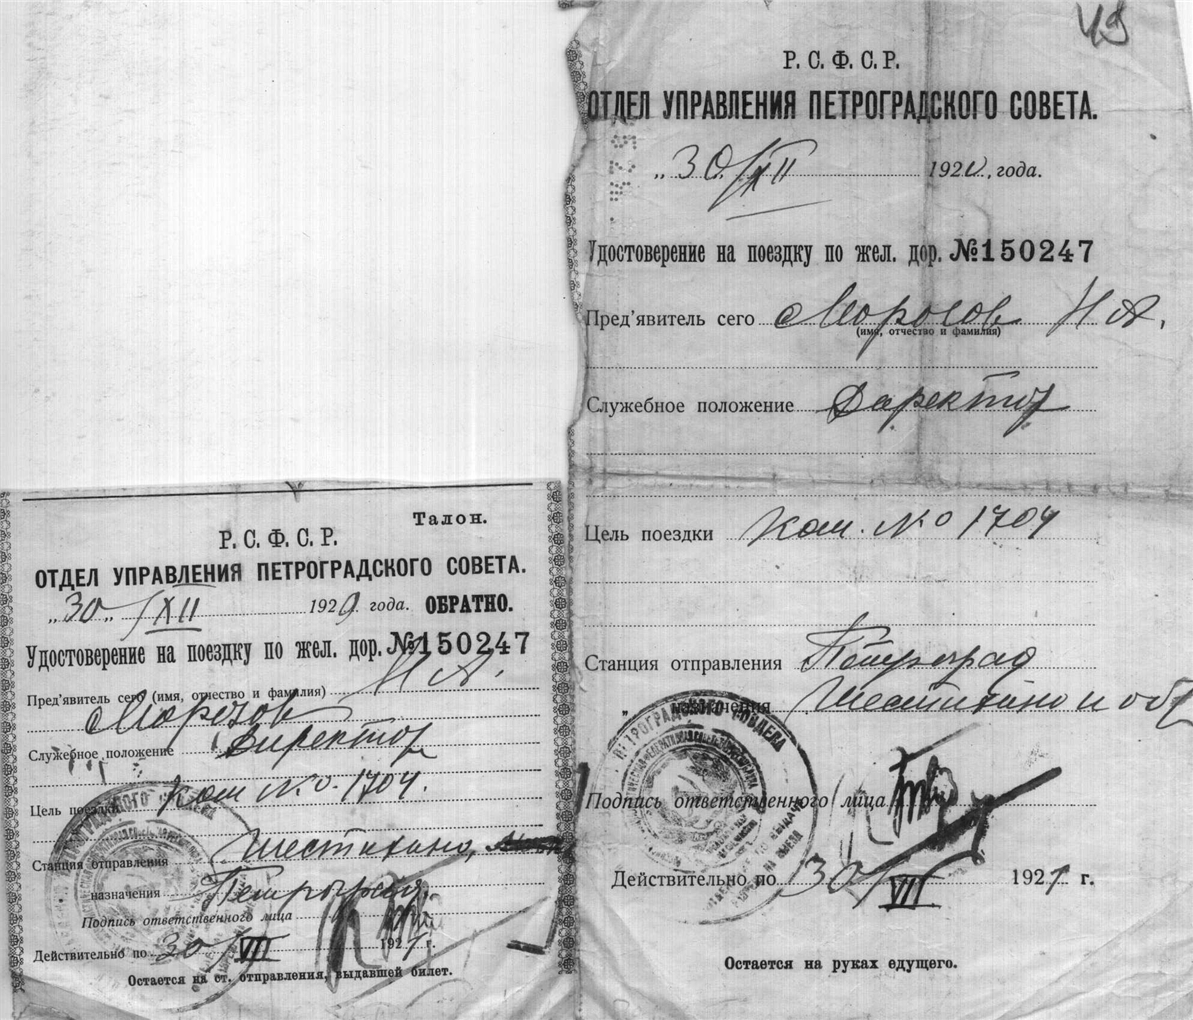 49
Р. С. Ф. С. Р.
ОТДЕЛ УПРАВЛЕНИЯ ПЕТРОГРАДСКОГО СОВЕТА.
„30/XII 1920, года.
Удостоверение на поездку по жел. дор. №150247
Пред'явитель сего Морозов Н А.
(имя, отчество и фамилия)
Служебное положение Директор
Цель поездки Ком. No 1704
Станция отправления Петроград
„ назначения Шестихино и обр
ПЕТРОГРАДСКОГО СОВДЕПА
Подпись ответственного лица
Действительно по 30/VII 1921 г.
Остается на руках едущего.
Талон.
Р. С. Ф. С. Р.
ОТДЕЛ УПРАВЛЕНИЯ ПЕТРОГРАДСКОГО СОВЕТА.
„30„/XII 1920. года. ОБРАТНО.
Удостоверение на поездку по жел. дор. №150247
Пред'явитель сего (имя, отчество и фамилия) Н А.
Морозов
Служебное положение Директор
Цель поездки Ком No. 1704.
Станция отправления Шестихино,
назначения Петроград.
Подпись ответственного лица
Действительно по 30/VII 1921 г.
Остается на ст. отправления, выдавшей билет.